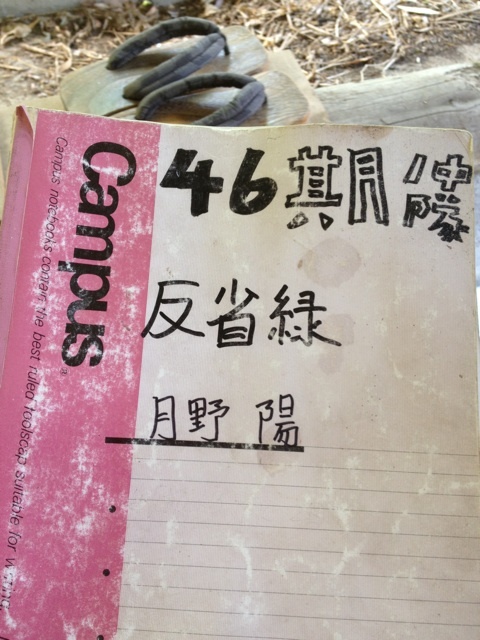 46期 仲隊
反省緑
月野 陽
Campus
Campus notebooks contain the best ruled foolscap suitable for writing